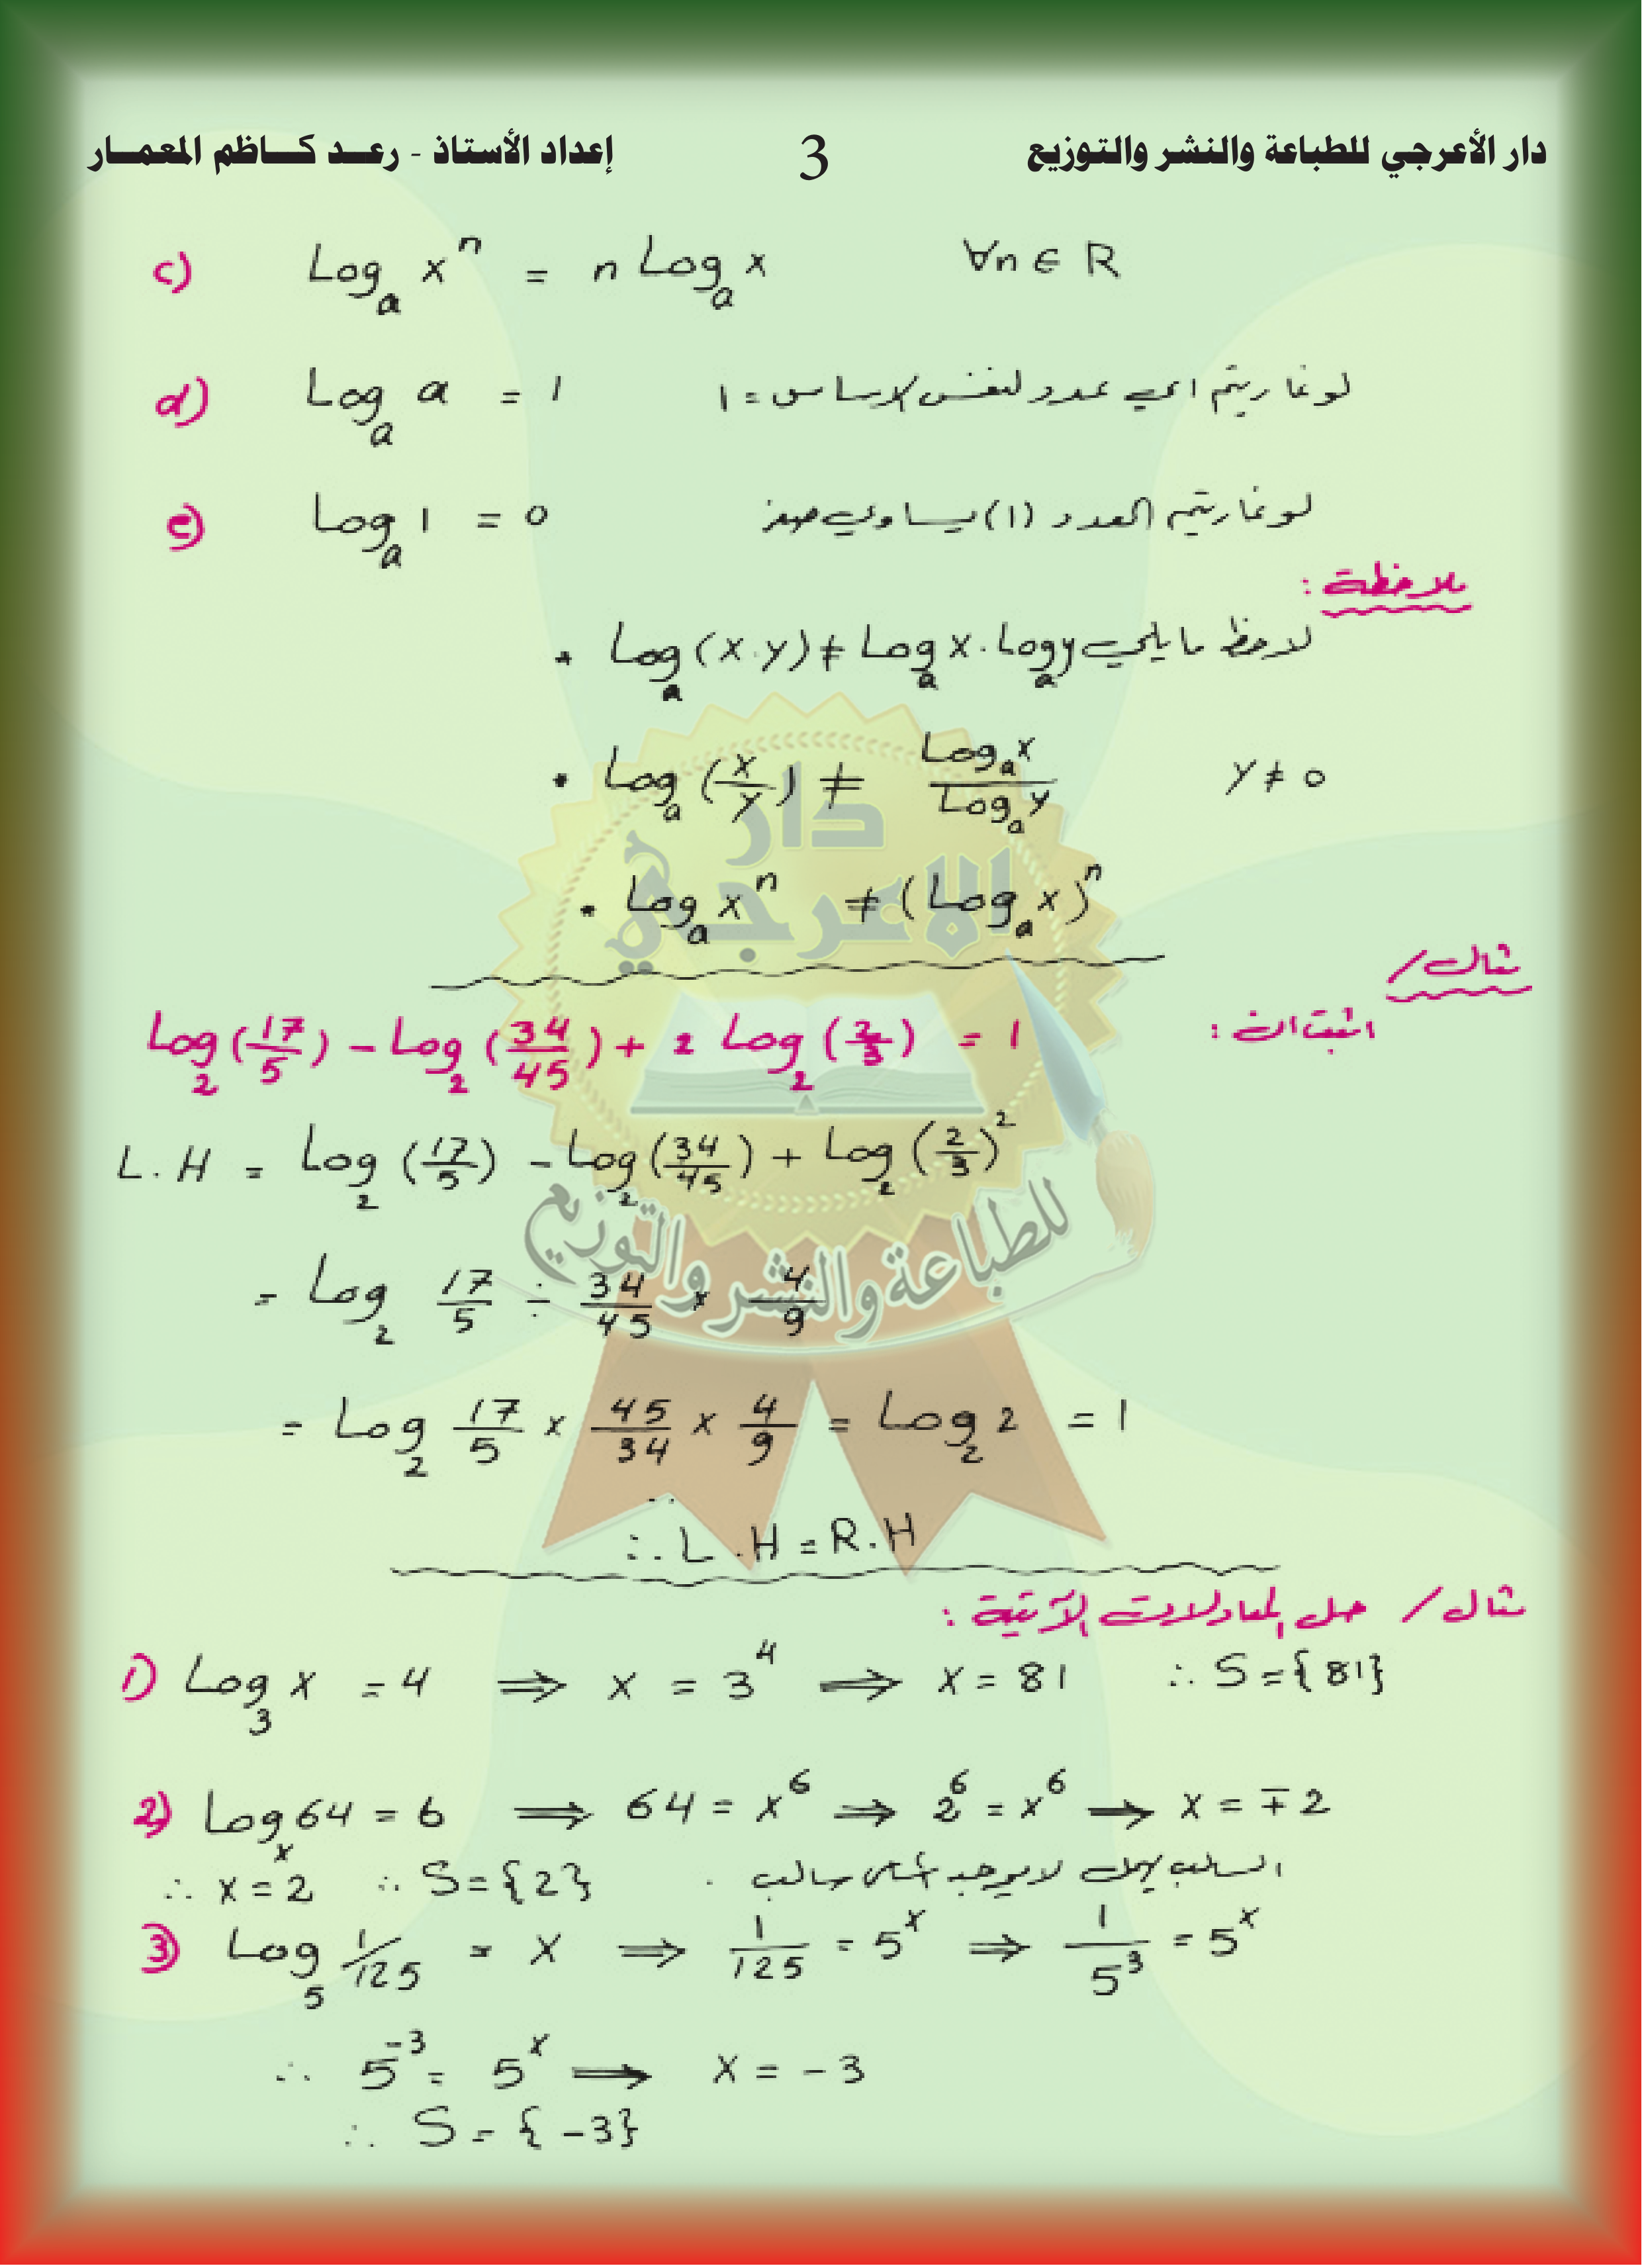 دار الأعرجي للطباعة والنشر والتوزيع 3 إعداد الأستاذ - رعـد كـاظم المعمـار
c) Log_a x^n = n Log_a x ∀n ∈ R
d) Log_a a = 1 لوغاريتم اي عدد لنفس الاساس = 1
e) Log_a 1 = 0 لوغاريتم العدد (1) يساوي صفر
ملاحظة :
لاحظ مايلي • Log_a (x.y) ≠ Log_a x . Log_a y
• Log_a (x/y) ≠ Log_a x / Log_a y y ≠ 0
• Log_a x^n ≠ (Log_a x)^n
مثال /
اثبت ان : Log_2 (17/5) - Log_2 (34/45) + 2 Log_2 (2/3) = 1
L.H = Log_2 (17/5) - Log_2 (34/45) + Log_2 (2/3)^2
= Log_2 17/5 ÷ 34/45 × 4/9
= Log_2 17/5 × 45/34 × 4/9 = Log_2 2 = 1
∴ L.H = R.H
مثال / حل المعادلات الآتية :
1) Log_3 x = 4 ⟹ x = 3^4 ⟹ x = 81 ∴ S = {81}
2) Log_x 64 = 6 ⟹ 64 = x^6 ⟹ 2^6 = x^6 ⟶ x = ∓2
∴ x = 2 ∴ S = {2} السالب يهمل لايوجد اساس سالب .
3) Log_5 1/125 = x ⟹ 1/125 = 5^x ⟹ 1/5^3 = 5^x
∴ 5^-3 = 5^x ⟹ x = -3
∴ S = {-3}
دار
الاعرجي
للطباعة والنشر والتوزيع